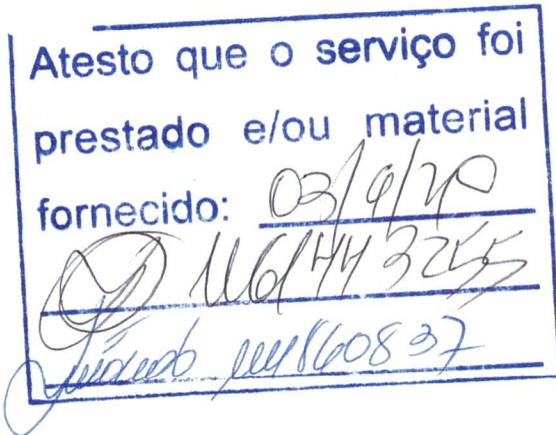 Atesto que o serviço foi
prestado e/ou material
fornecido: 03/9/20
443255
860837